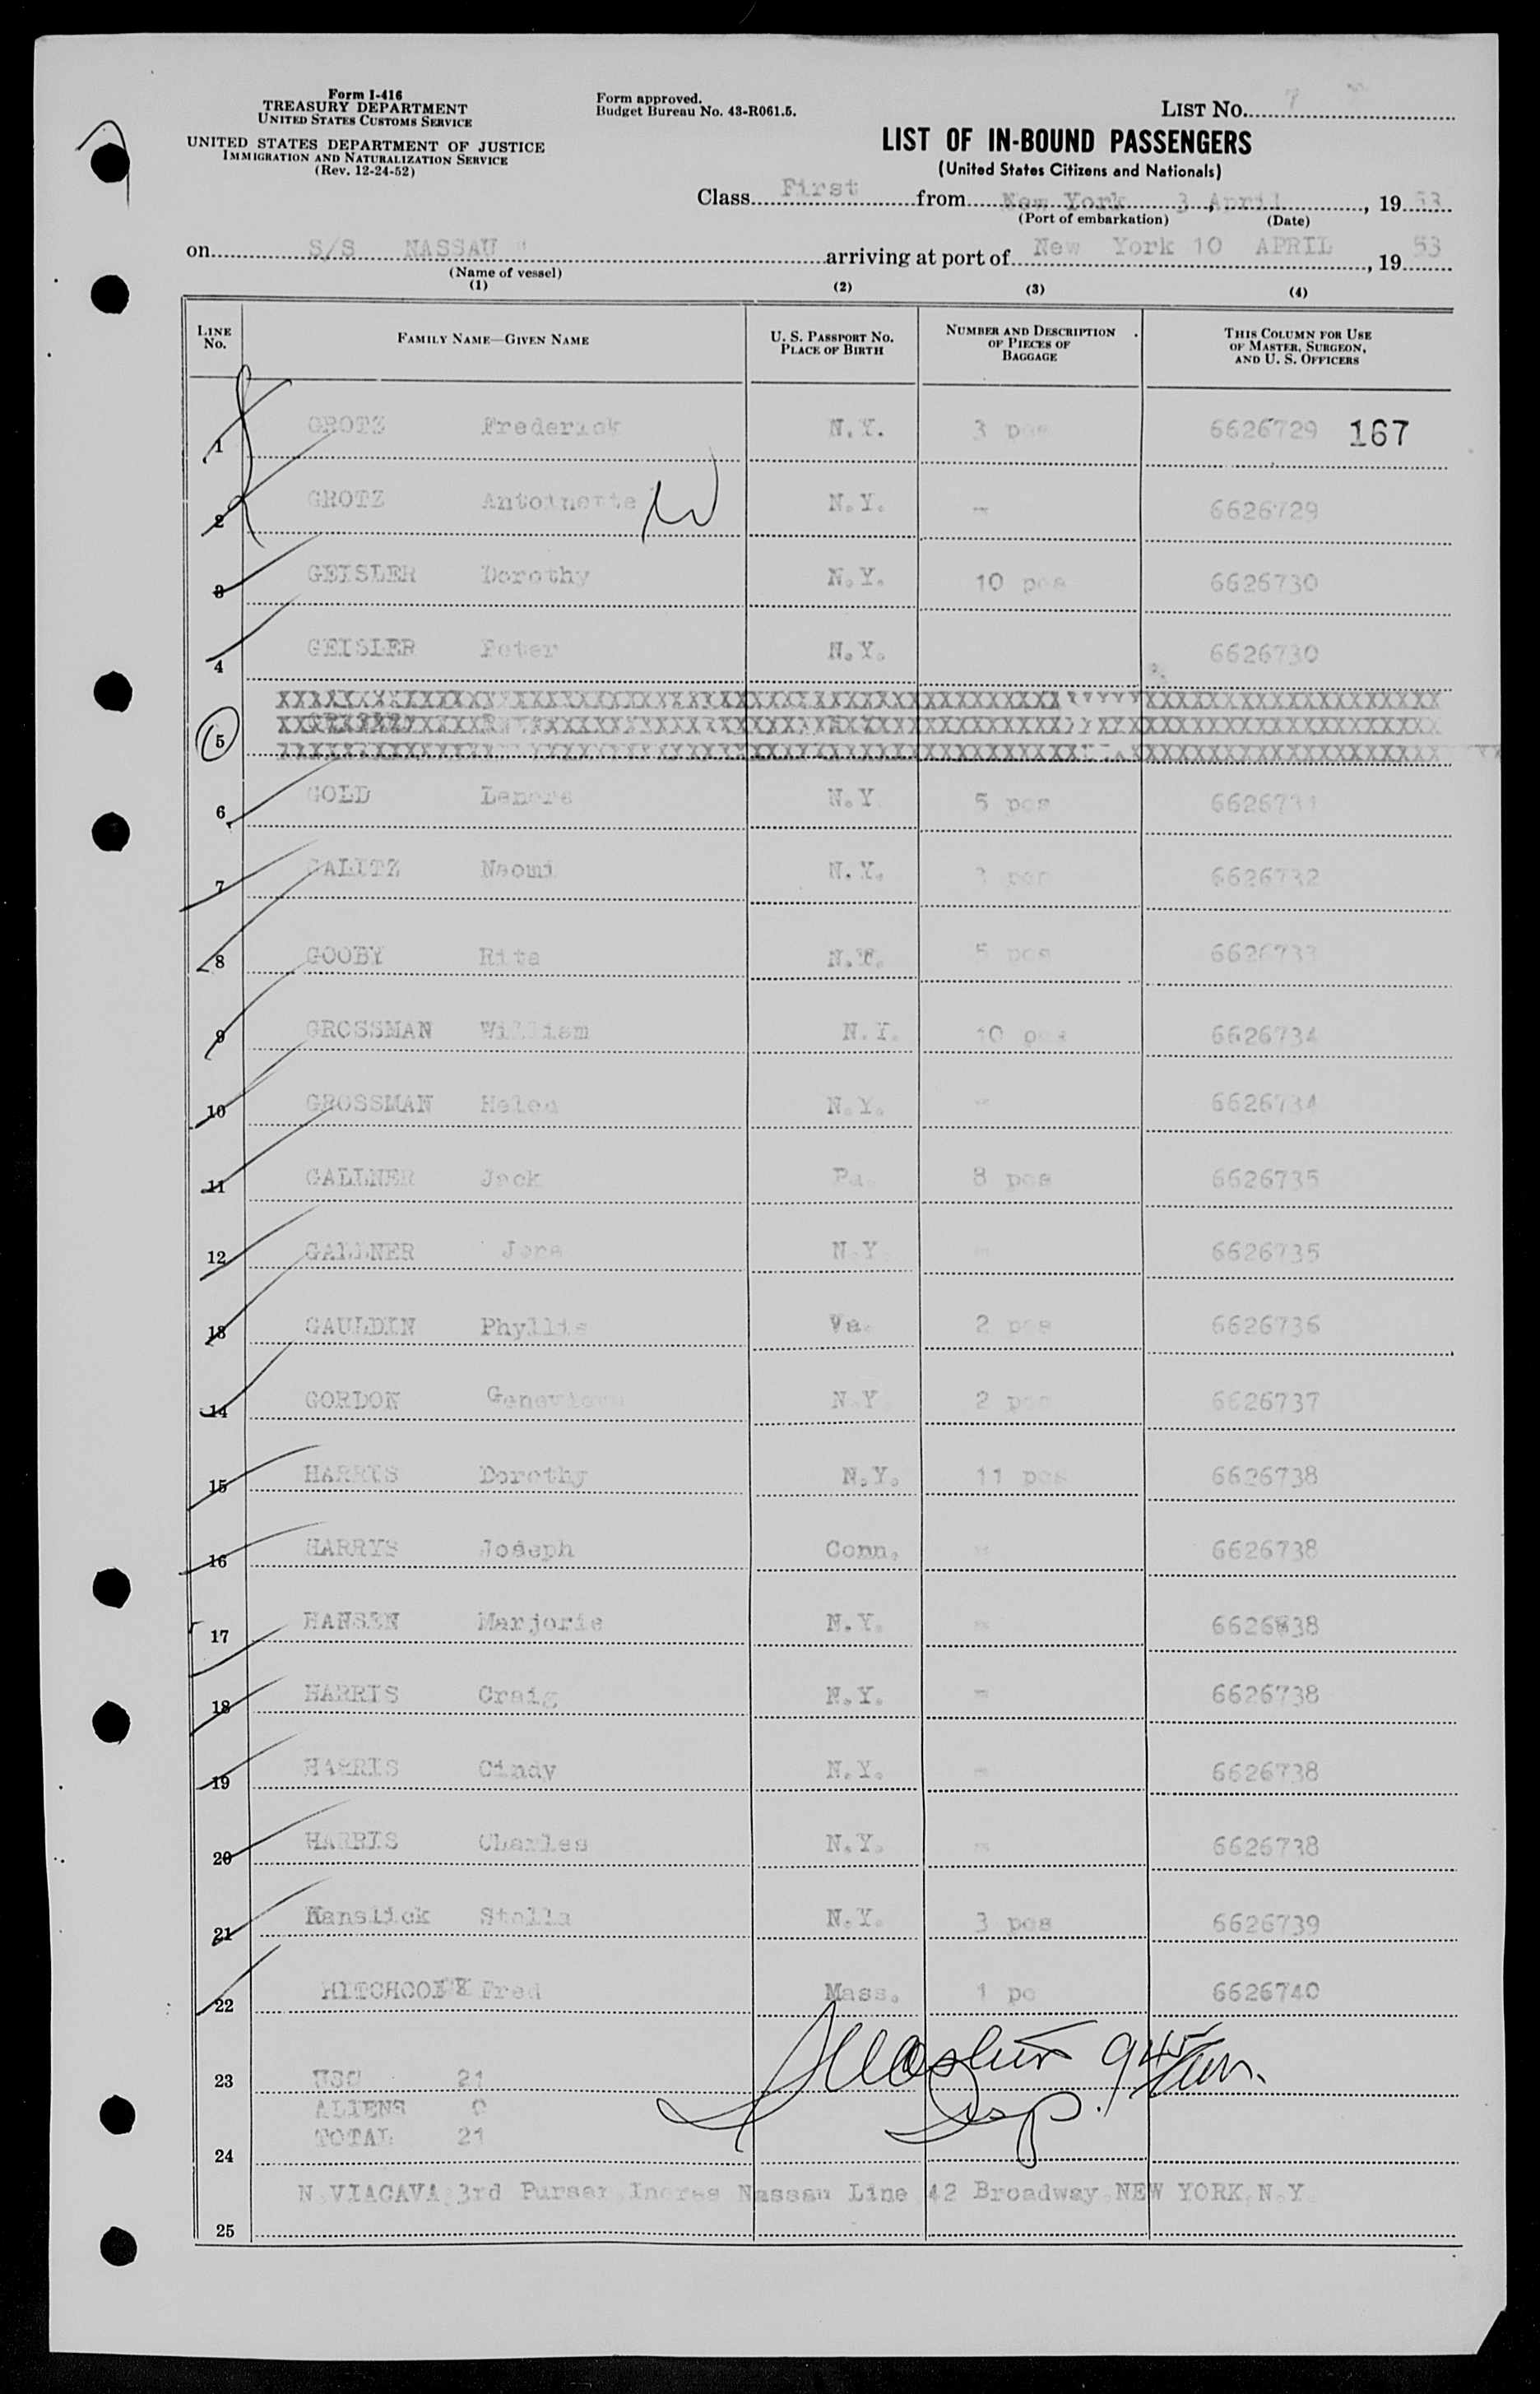 Form I-416
TREASURY DEPARTMENT
UNITED STATES CUSTOMS SERVICE
UNITED STATES DEPARTMENT OF JUSTICE
IMMIGRATION AND NATURALIZATION SERVICE
(Rev. 12-24-52)
Form approved.
Budget Bureau No. 43-R061.5.
LIST NO. 7
LIST OF IN-BOUND PASSENGERS
(United States Citizens and Nationals)
Class First from New York 3 April, 19 53
(Port of embarkation) (Date)
on S/S NASSAU arriving at port of New York 10 APRIL, 19 53
(Name of vessel)
(1) (2) (3) (4)
LINE No. FAMILY NAME—GIVEN NAME U. S. PASSPORT NO. PLACE OF BIRTH NUMBER AND DESCRIPTION OF PIECES OF BAGGAGE THIS COLUMN FOR USE OF MASTER, SURGEON, AND U. S. OFFICERS
1 GROTZ Frederick N.Y. 3 pcs 6626729 167
2 GROTZ Antoinette N.Y. - 6626729
3 GEISLER Dorothy N.Y. 10 pcs 6626730
4 GEISLER Peter N.Y. 6626730
5
6 GOLD Lenore N.Y 5 pcs 6626731
7 GALITZ Naomi N.Y. 3 pcs 6626732
8 GOOBY Rita N.Y. 5 pcs 6626733
9 GROSSMAN William N.Y. 10 pcs 6626734
10 GROSSMAN Helen N.Y. - 6626734
11 GALLNER Jack Pa. 8 pcs 6626735
12 GALLNER N.Y - 6626735
13 GAULDIN Phyllis Va. 2 pcs 6626736
14 GORDON Genevieve N.Y 2 pcs 6626737
15 HARRIS Dorothy N.Y. 11 pcs 6626738
16 HARRYS Joseph Conn. - 6626738
17 HANSEN Marjorie N.Y. - 6626738
18 HARRIS Craig N.Y. - 6626738
19 HARRIS Cindy N.Y. - 6626738
20 HARRIS Charles N.Y. - 6626738
21 Hanslick Stella N.Y. 3 pcs 6626739
22 Fred Mass. 1 pc 6626740
23 USC 21
ALIENS 0
TOTAL 21
Insp.
24
N.VIACAVA 3rd Purser Incres Nassau Line 42 Broadway NEW YORK N.Y.
25